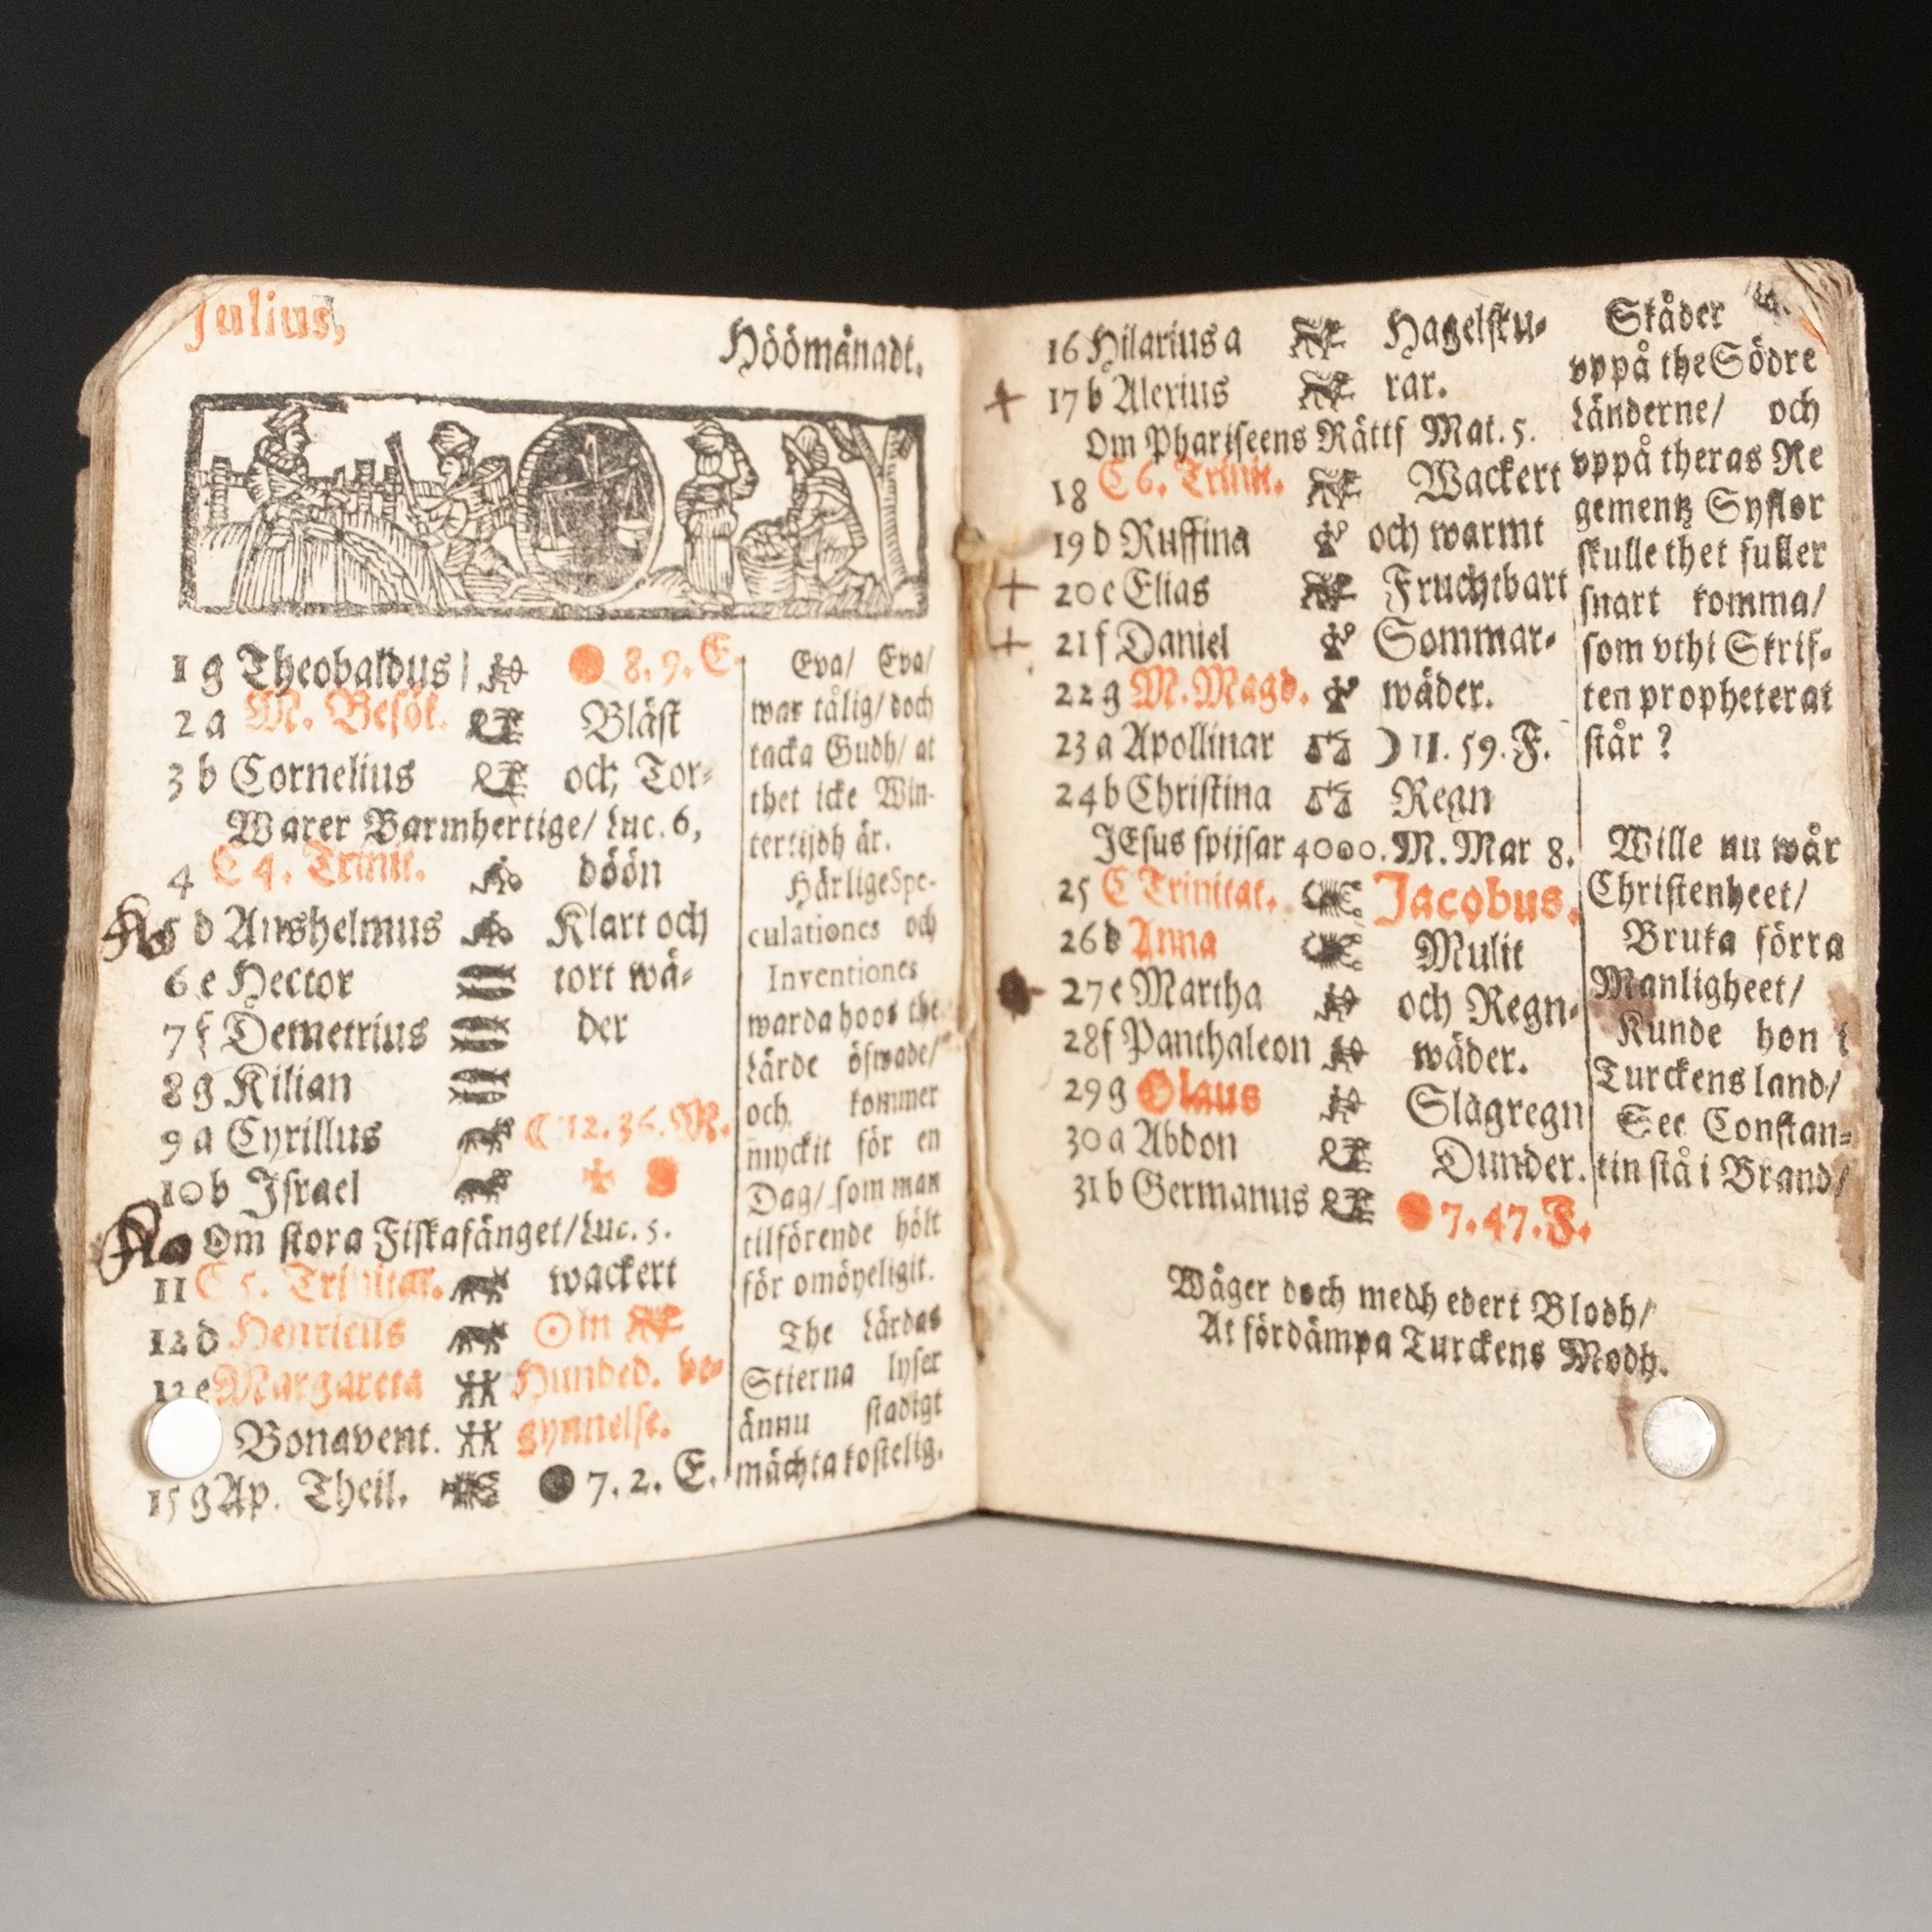 Julius,
Höömånadt.
1 g Theobaldus 8. 9. E.
2 a M. Besök. Bläst
3 b Cornelius och Tor-
Warer Barmhertige/ Luc. 6,
4 C 4. Trinit. döön
5 d Anshelmus Klart och
6 e Hector tort wä-
7 f Demetrius der
8 g Kilian
9 a Cyrillus ☾ 12. 36. M.
10 b Israel
Om stora Fiskafänget/ Luc. 5.
11 C 5. Trinitat. wackert
12 d Henricus ☉ in
13 e Margareta Hunded. be-
Bonavent. gynnelse.
15 g Ap. Theil. 7. 2. E.
Eva/ Eva/
war tålig/ doch
tacka Gudh/ at
thet icke Win-
tertijdh är.
Härlige Spe-
culationes och
Inventiones
warda hoos the
Lärde öfwade/
och kommer
myckit för en
Dag/ som man
tilförende hölt
för omöyeligit.
The Lärdas
Stierna lyser
ännu stadigt
mächta kostelig.
16 Hilarius a Hagelstu-
17 b Alexius rar.
Om Phariseens Rättf Mat. 5.
18 C 6. Trinit. Wackert
19 d Ruffina och warmt
20 e Elias Fruchtbart
21 f Daniel Sommar-
22 g M. Magd. wäder.
23 a Apollinar ☽ 11. 59. F.
24 b Christina Regn
JEsus spijsar 4000. M. Mar 8.
25 C Trinitat. Jacobus.
26 d Anna Mulit
27 e Martha och Regn-
28 f Panthaleon wäder.
29 g Olaus Slagregn
30 a Abdon Dunder.
31 b Germanus 7. 47. F.
Skåder
vppå the Södre
Länderne/ och
vppå theras Re
gementz Syslor
skulle thet fuller
snart komma/
som vthi Skrif-
ten propheterat
står ?
Wille nu wår
Christenheet/
Bruka förra
Manligheet/
Kunde hon i
Turckens land/
See Constan-
tin stå i Brand/
Wåger doch medh edert Blodh/
At fördämpa Turckens Modh.